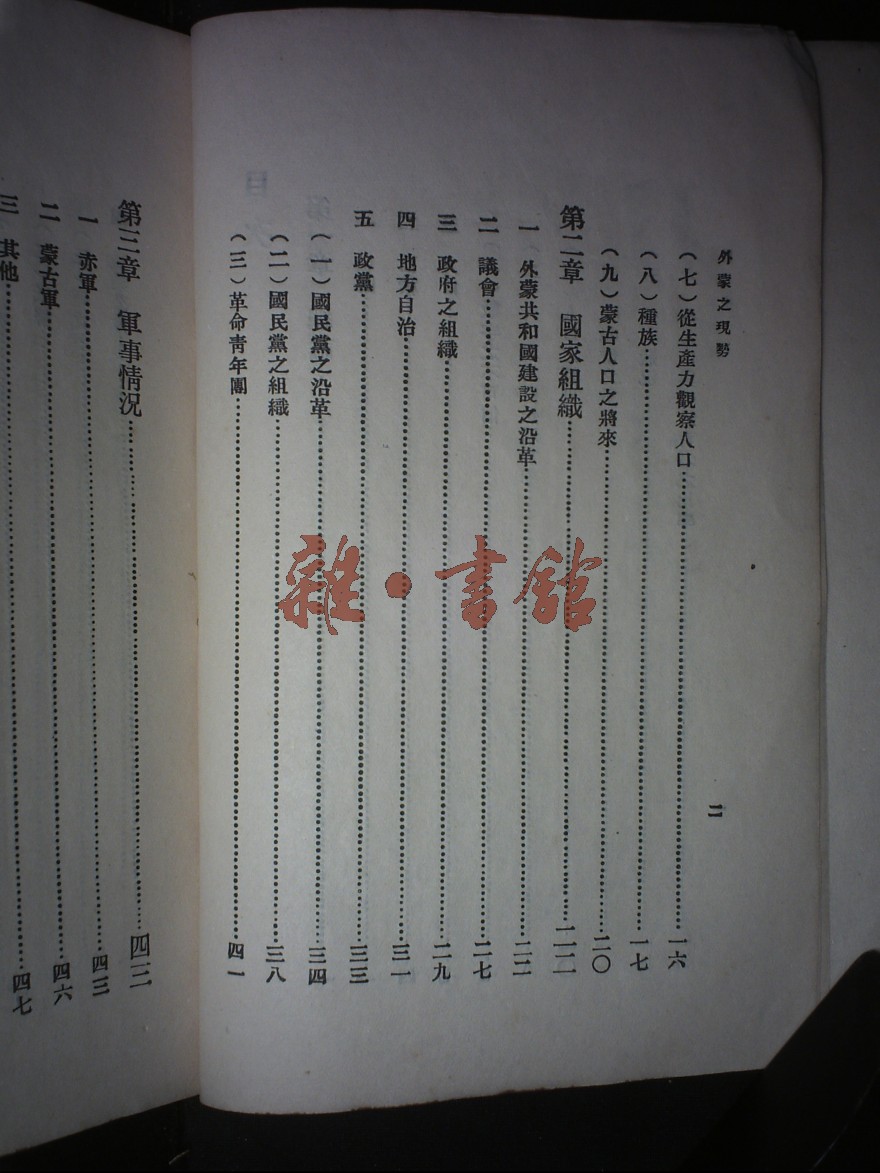 外蒙之現勢
二
(七)從生產力觀察人口⋯⋯一六
(八)種族⋯⋯一七
(九)蒙古人口之將來⋯⋯二〇
第二章 國家組織⋯⋯二二
一 外蒙共和國建設之沿革⋯⋯二二
二 議會⋯⋯二七
三 政府之組織⋯⋯二九
四 地方自治⋯⋯三一
五 政黨⋯⋯三三
(一)國民黨之沿革⋯⋯三四
(二)國民黨之組織⋯⋯三八
(三)革命靑年團⋯⋯四一
第三章 軍事情況⋯⋯四三
一 赤軍⋯⋯四三
二 蒙古軍⋯⋯四六
三 其他⋯⋯四七
雜·書館